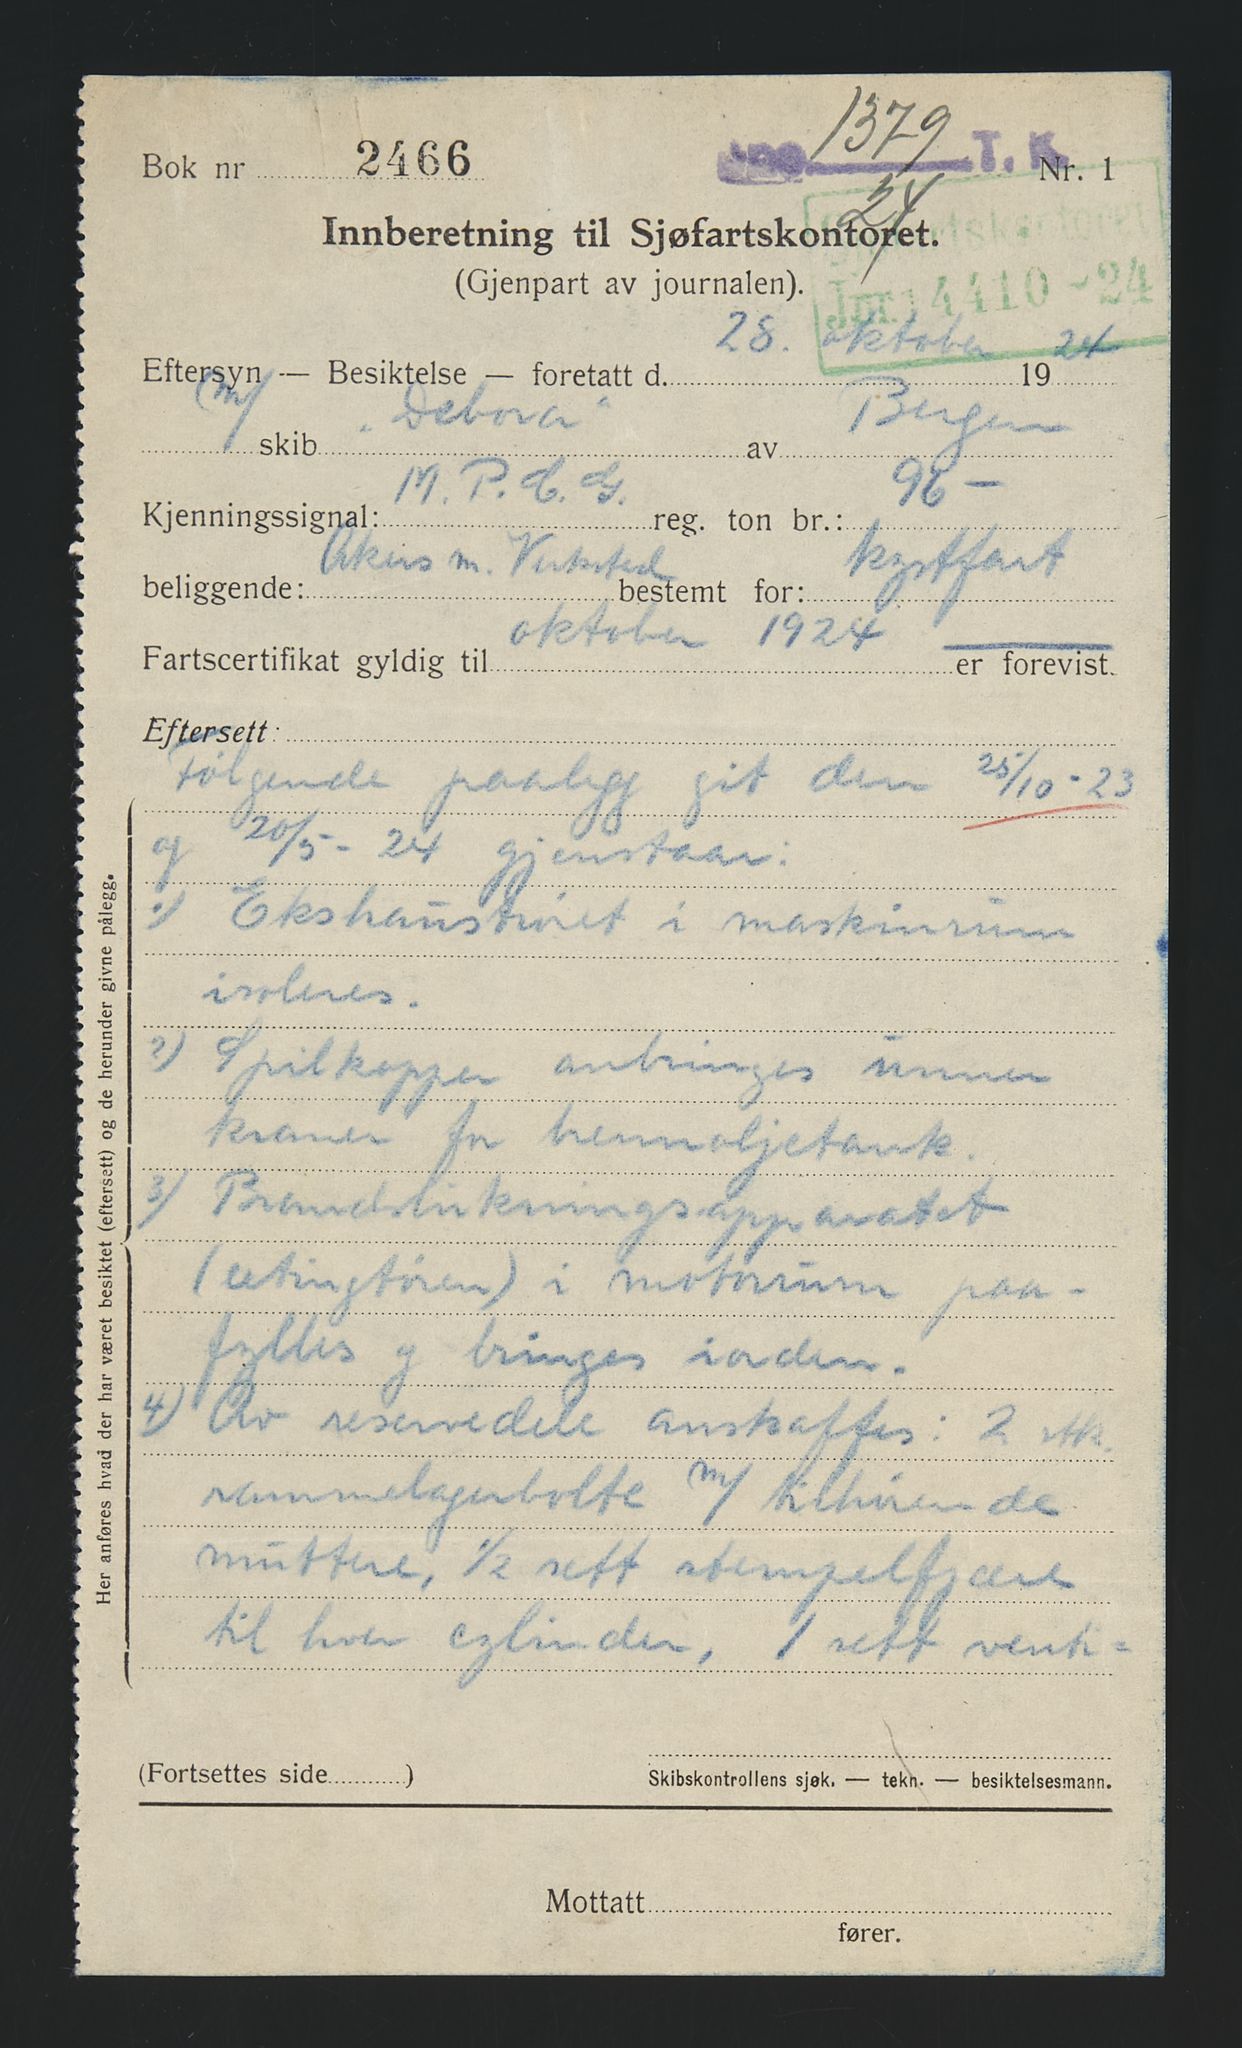 1379
24
Bok nr 2466
T. K.
Nr. 1
Innberetning til Sjøfartskontoret.
(Gjenpart av journalen).
Jnr. 14410 - 24
Eftersyn — Besiktelse — foretatt d. 28. oktober 1924
m/ skib „Debora" av Bergen
Kjenningssignal: M. P. C. G. reg. ton br.: 96 —
beliggende: Akers m. Verksted bestemt for: kystfart
Fartscertifikat gyldig til oktober 1924 er forevist.
Eftersett:
Følgende paalegg git den 25/10 - 23
og 20/5 - 24 gjenstaar:
1) Ekshaustrøret i maskinrum
isoleres.
2) Spilkopper anbringes unner
kraner for brennoljetank.
3) Brandslukningsapparatet
i motorrum paa-
fylles og bringes iorden.
4) Av reservedele anskaffes: 2 stk.
rammelagerbolte m/ tilhørende
muttere, 1/2 sett stempelfjære
til hver cylinder, 1 sett venti-
Her anføres hvad der har været besiktet (eftersett) og de herunder givne pålegg.
(Fortsettes side )
Skibskontrollens sjøk. — tekn. — besiktelsesmann.
Mottatt
fører.